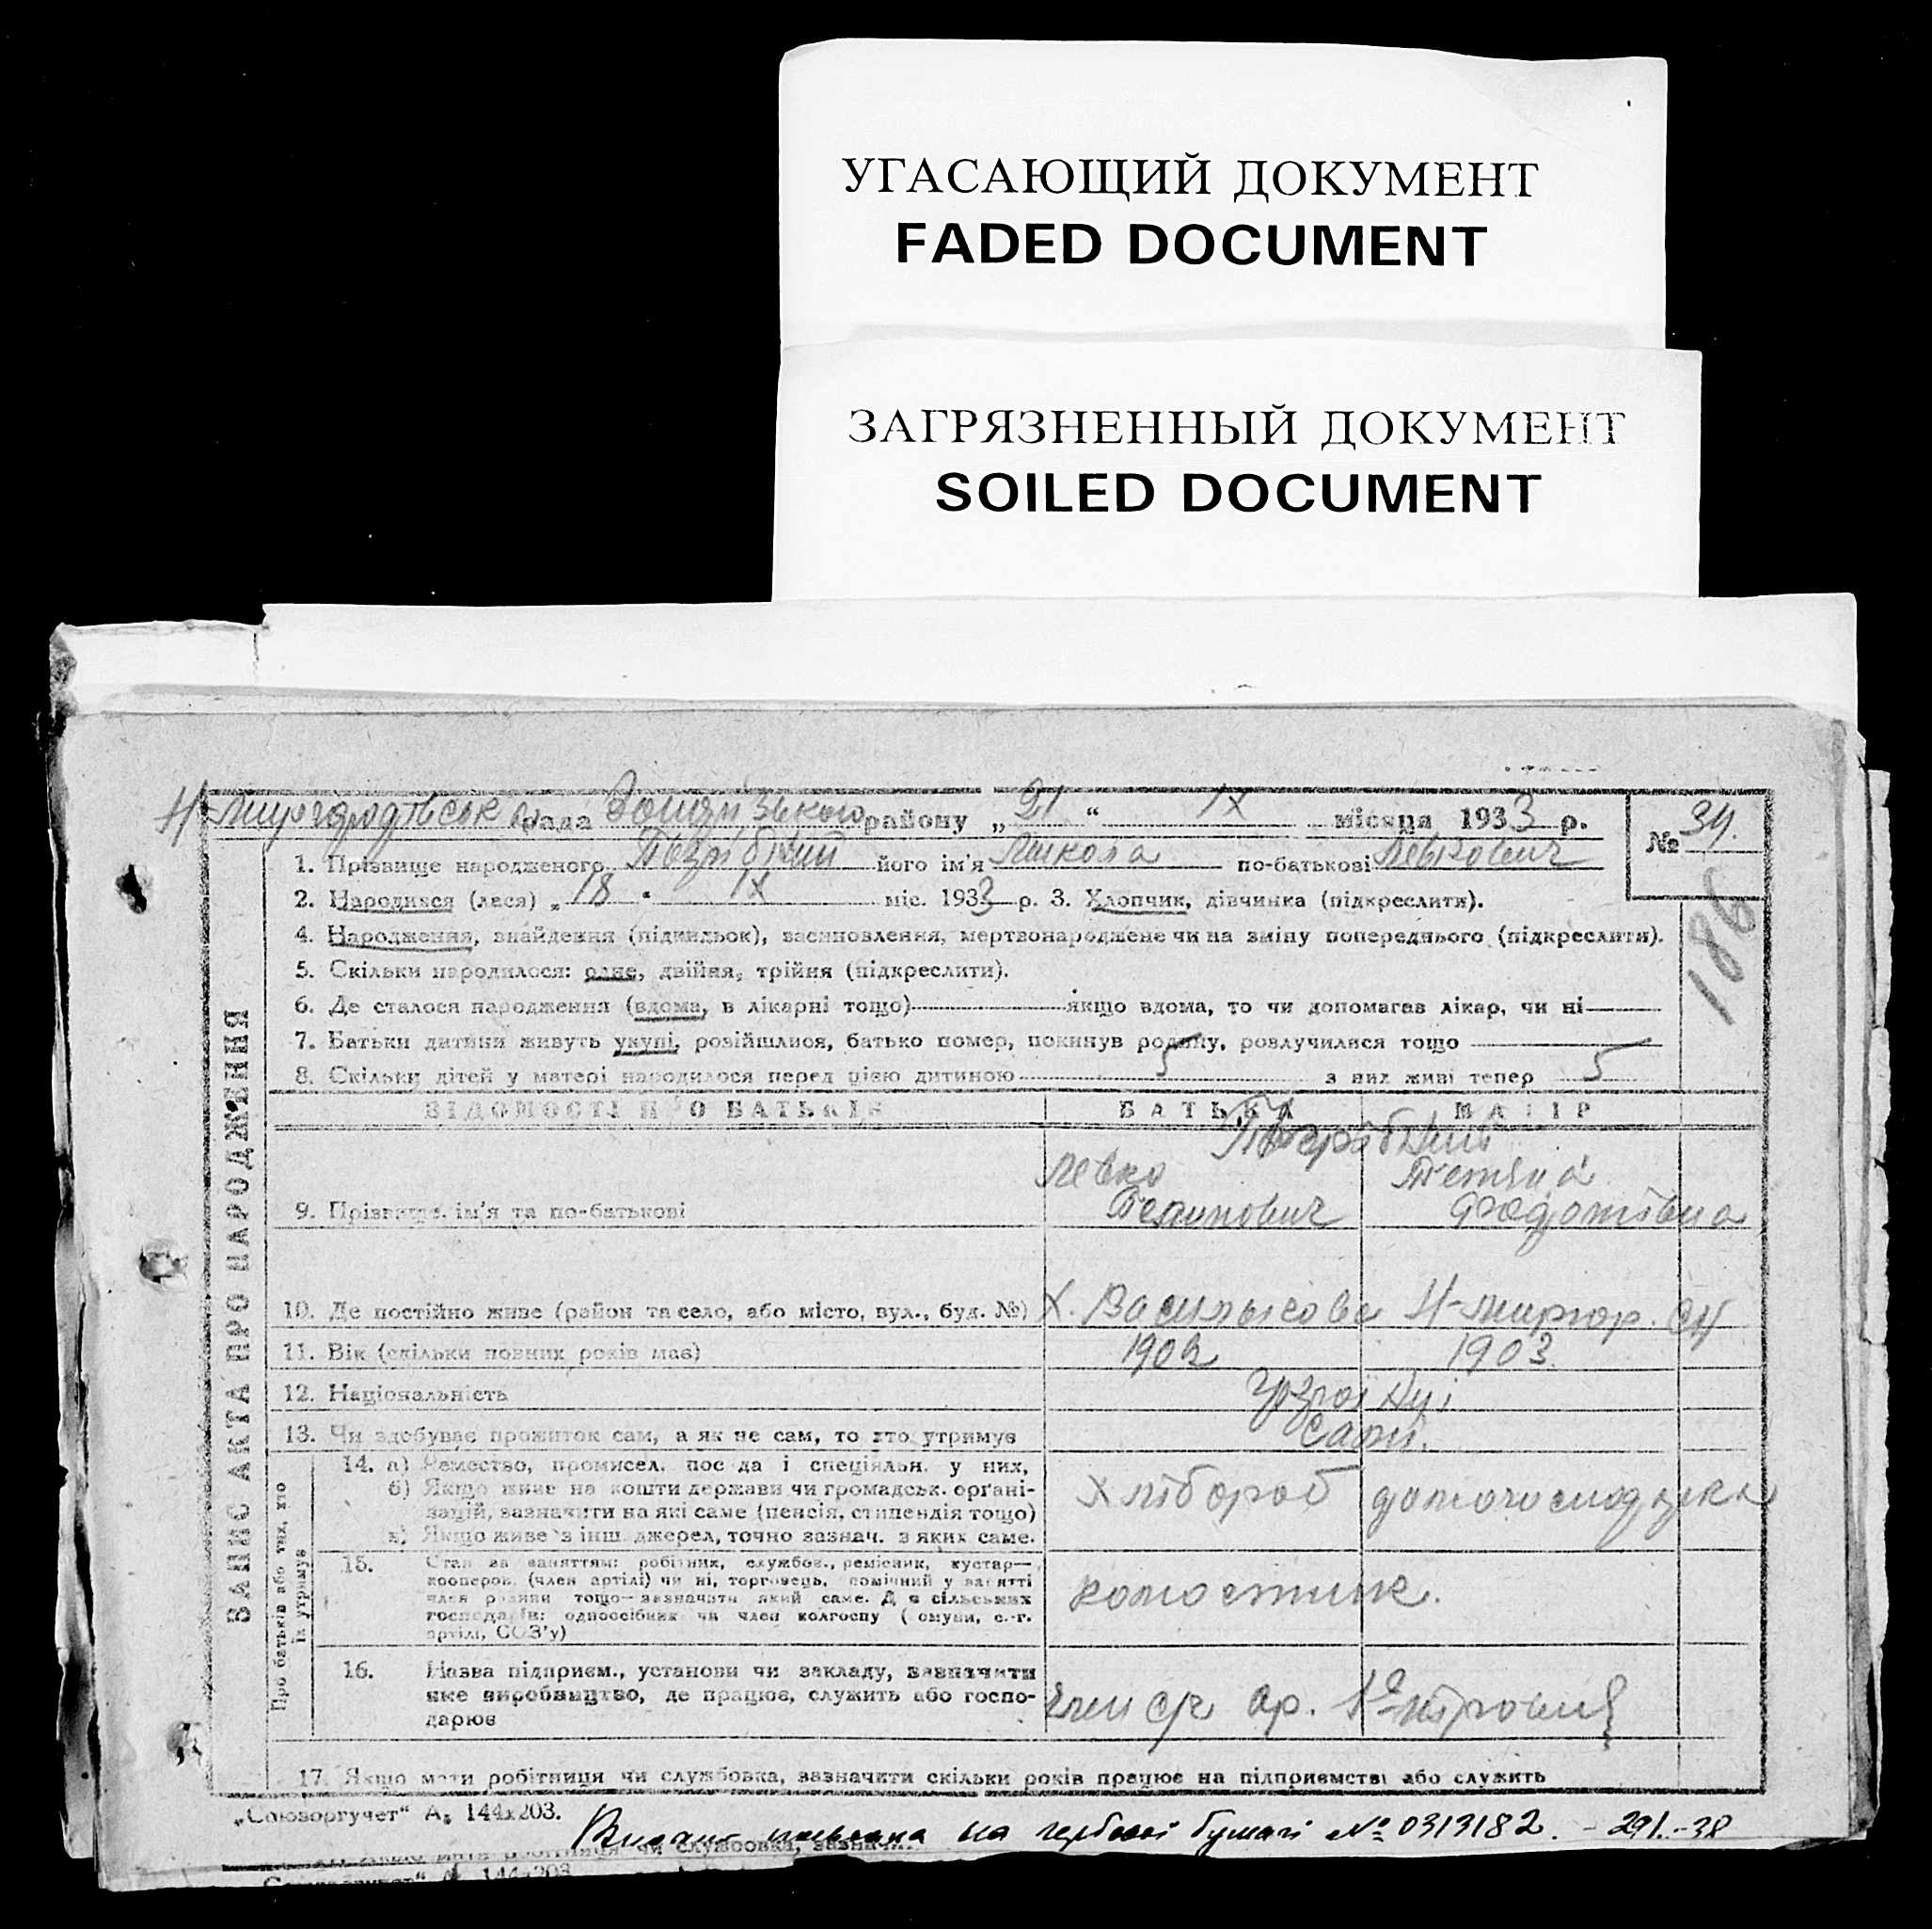 УГАСАЮЩИЙ ДОКУМЕНТ
FADED DOCUMENT
ЗАГРЯЗНЕННЫЙ ДОКУМЕНТ
SOILED DOCUMENT
рада району „ 21 “ IX місяця 1933 р.
№ 34.
186
ЗАПИС АКТА ПРО НАРОДЖЕННЯ
1. Прізвище народженого його ім'я Микола по-батькові Левкович
2. Народився (лася) „ 18 “ IX міс. 1933 р. 3. Хлопчик, дівчинка (підкреслити).
4. Народження, знайдення (підкидьок), засиновлення, мертвонароджене чи на зміну попереднього (підкреслити).
5. Скільки народилося: одне, двійня, трійня (підкреслити).
6. Де сталося народження (вдома, в лікарні тощо) якщо вдома, то чи допомагав лікар, чи ні
7. Батьки дитини живуть укупі, розійшлися, батько помер, покинув родину, розлучилися тощо
8. Скільки дітей у матері народилося перед цією дитиною 5 з них живі тепер 5
ВІДОМОСТІ ПРО БАТЬКІВ БАТЬКО МАТІР
Левко Тетяна
9. Прізвище, ім'я та по-батькові Федотівна
10. Де постійно живе (район та село, або місто, вул., буд. №) Х. Василькове Н-миргор. СР
11. Вік (скільки повних років має) 1902 1903
12. Національність Українці
13. Чи здобуває прожиток сам, а як не сам, то хто утримує Сами.
Про батьків або тих, хто їх утримує
14. а) Ремество, промисел, посада і спеціяльн. у них,
б) Якщо живе на кошти держави чи громадськ. органі-
зацій, зазначити на які саме (пенсія, стипендія тощо)
в) Якщо живе з інш. джерел, точно зазнач. з яких саме.
Хлібороб домогосподарка
15. Стан за заняттям: робітник, службов., ремісник, кустар—
кооперов. (член артілі) чи ні, торговець, помічний у занятті
член родини тощо—зазначити який саме. Для сільських
господарів: одноосібник чи член колгоспу (комуни, с.-г.
артілі, СОЗ'у)
колгоспник.
16. Назва підприєм., установи чи закладу, зазначити
яке виробництво, де працює, служить або госпо-
дарює
член с/г ар.
17. Якщо мати робітниця чи службовка, зазначити скільки років працює на підприємстві або служить
„Союзоргучет“ А5 144x203.
на гербовій бумагі № 0313182. - 291.-38